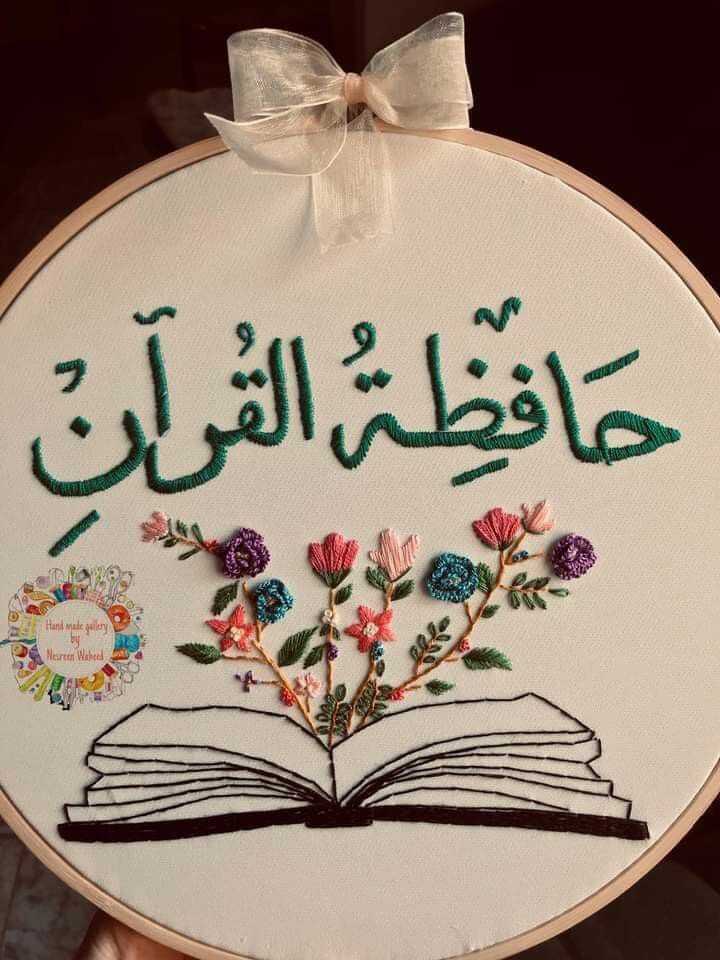 حَافِظَةُ القُرآنِ
Hand made gallery
by
Nesreen Waheed